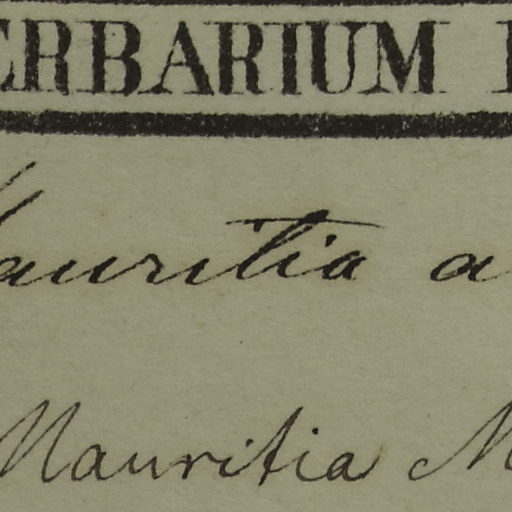 ERBARIUM
auritia a
Mauritia M